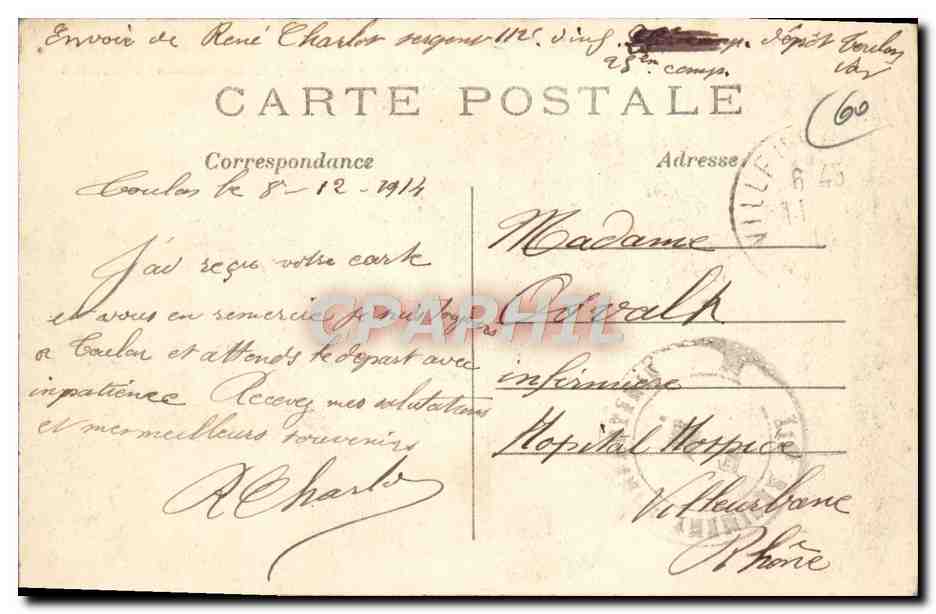 Envoie de René Charlot sergent 112e d'inf. dépôt Toulon
25em comp. Var
CARTE POSTALE
60
Correspondance
Adresse
Toulon le 8-12-1914
J'ai reçu votre carte
et vous en remercie je suis toujours
a Toulon et attends le départ avec
inpatience Recevez mes salutations
et mermeilleurs souvenirs
R Charlot
Madame
infirmiere
Hopital Hospice
Villeurbane
Rhône
VILLEUR
8 45
11
CPAPHIL